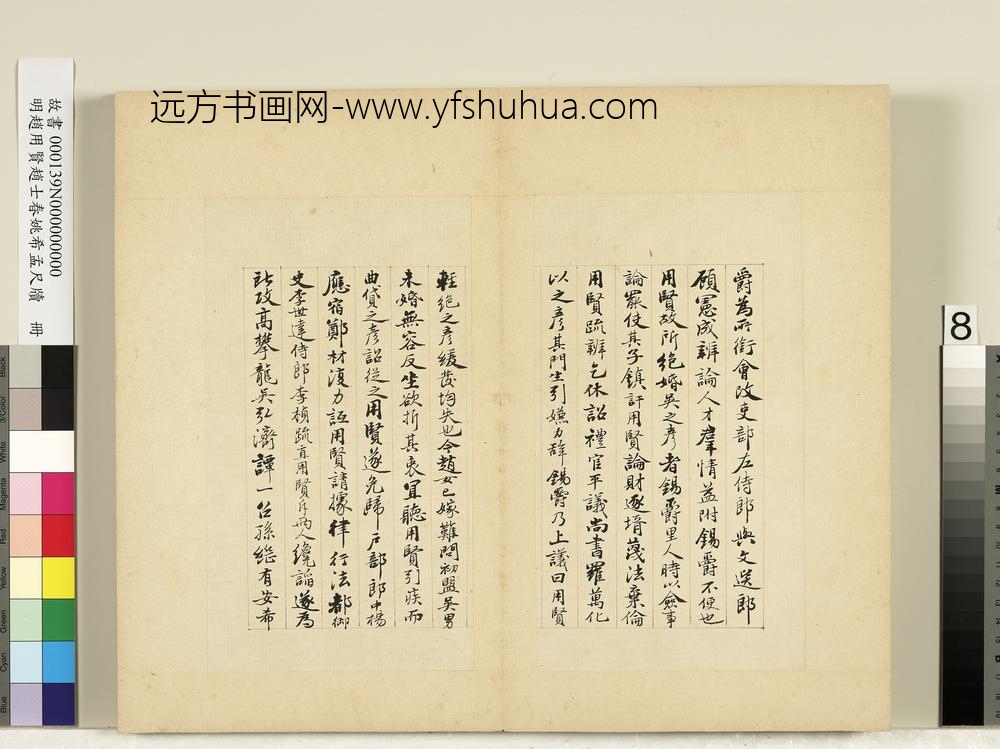 远方书画网-www.yfshuhua.com
故書 000139N000000000
明趙用賢趙士春姚希孟尺牘 冊
8
爵為所銜會改吏部左侍郎與文選郎
顧憲成辨論人才羣情益附錫爵不便也
用賢故所絶婚吳之彥者錫爵里人時以僉事
論罷使其子鎮訐用賢論財逐壻蔑法棄倫
用賢疏辨乞休詔禮官平議尚書羅萬化
以之彥其門生引嫌力辭錫爵乃上議曰用賢
輕絶之彥緩發均失也今趙女已嫁難問初盟吳男
未婚無容反坐欲折其衷宜聽用賢引疾而
曲貸之彥詔從之用賢遂免歸戶部郎中楊
應宿鄭材復力詆用賢請據律行法都御
史李世達侍郎李楨疏直用賢斥兩人讒諂遂為
所攻高攀龍吳弘濟譚一召孫繼有安希
Black
3/Color
White
Magenta
Red
Yellow
Green
Cyan
Blue